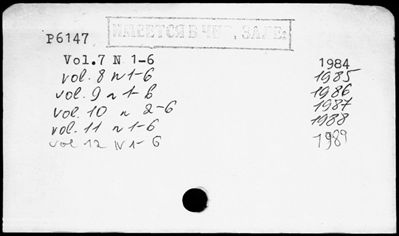 P6147 ИМЕЕТСЯ В ЧИТ. ЗАЛЕ:
Vol.7 N 1-6 1984
vol. 8 N 1-6 1985
vol. 9 n 1-6 1986
vol. 10 n 2-6 1987
vol. 11 n 1-6 1988
vol 12 N 1-6 1989